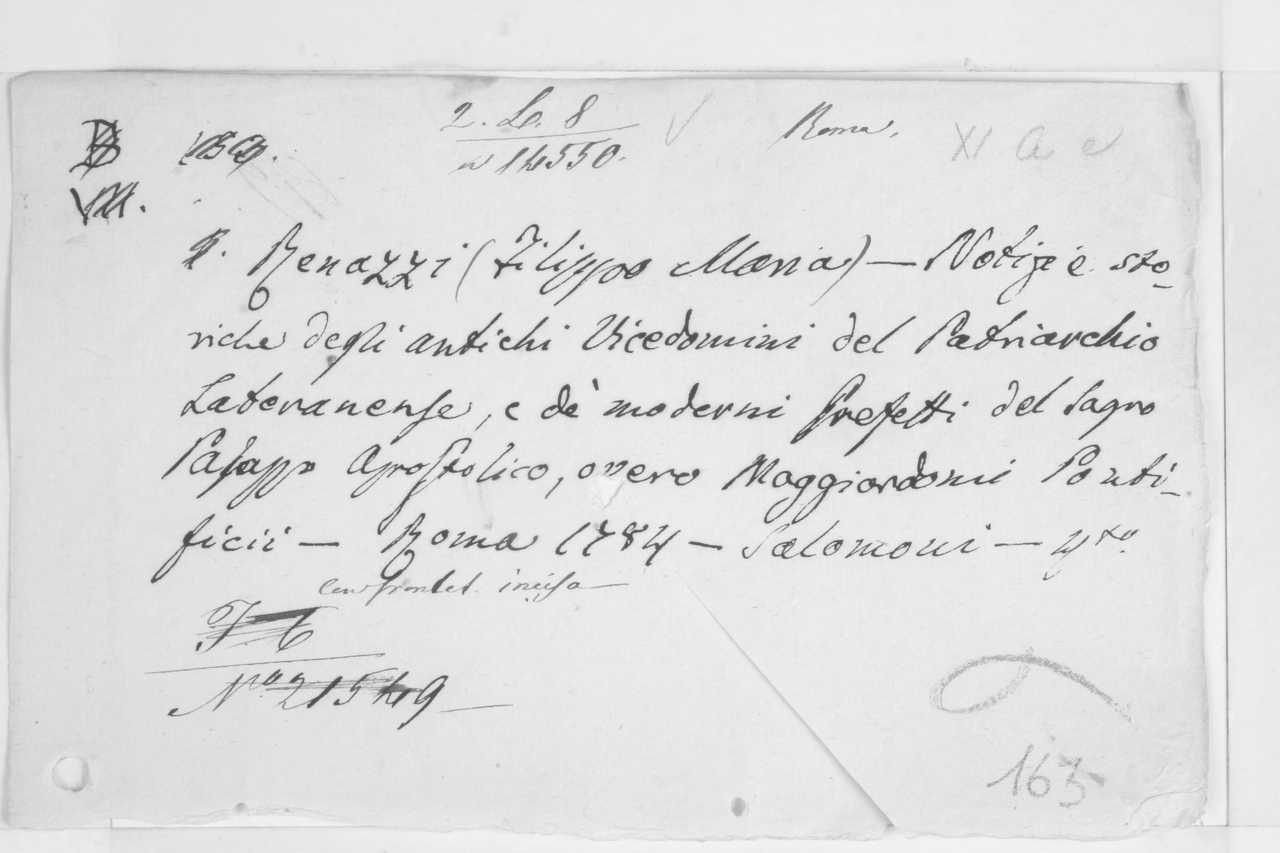 2. Lo. 8
nº 14550.
Roma.
XI a e
VIII.
Renazzi (Filippo Maria) — Notizie sto-
riche degli antichi Vicedomini del Patriarchio
Lateranense, e dè moderni Prefetti del Sagro
Palazzo Apostolico, overo Maggiordomi Ponti-
ficii — Roma 1784 — Salomoni — 4to.
con frontel. incisa —
Nº 21549
163